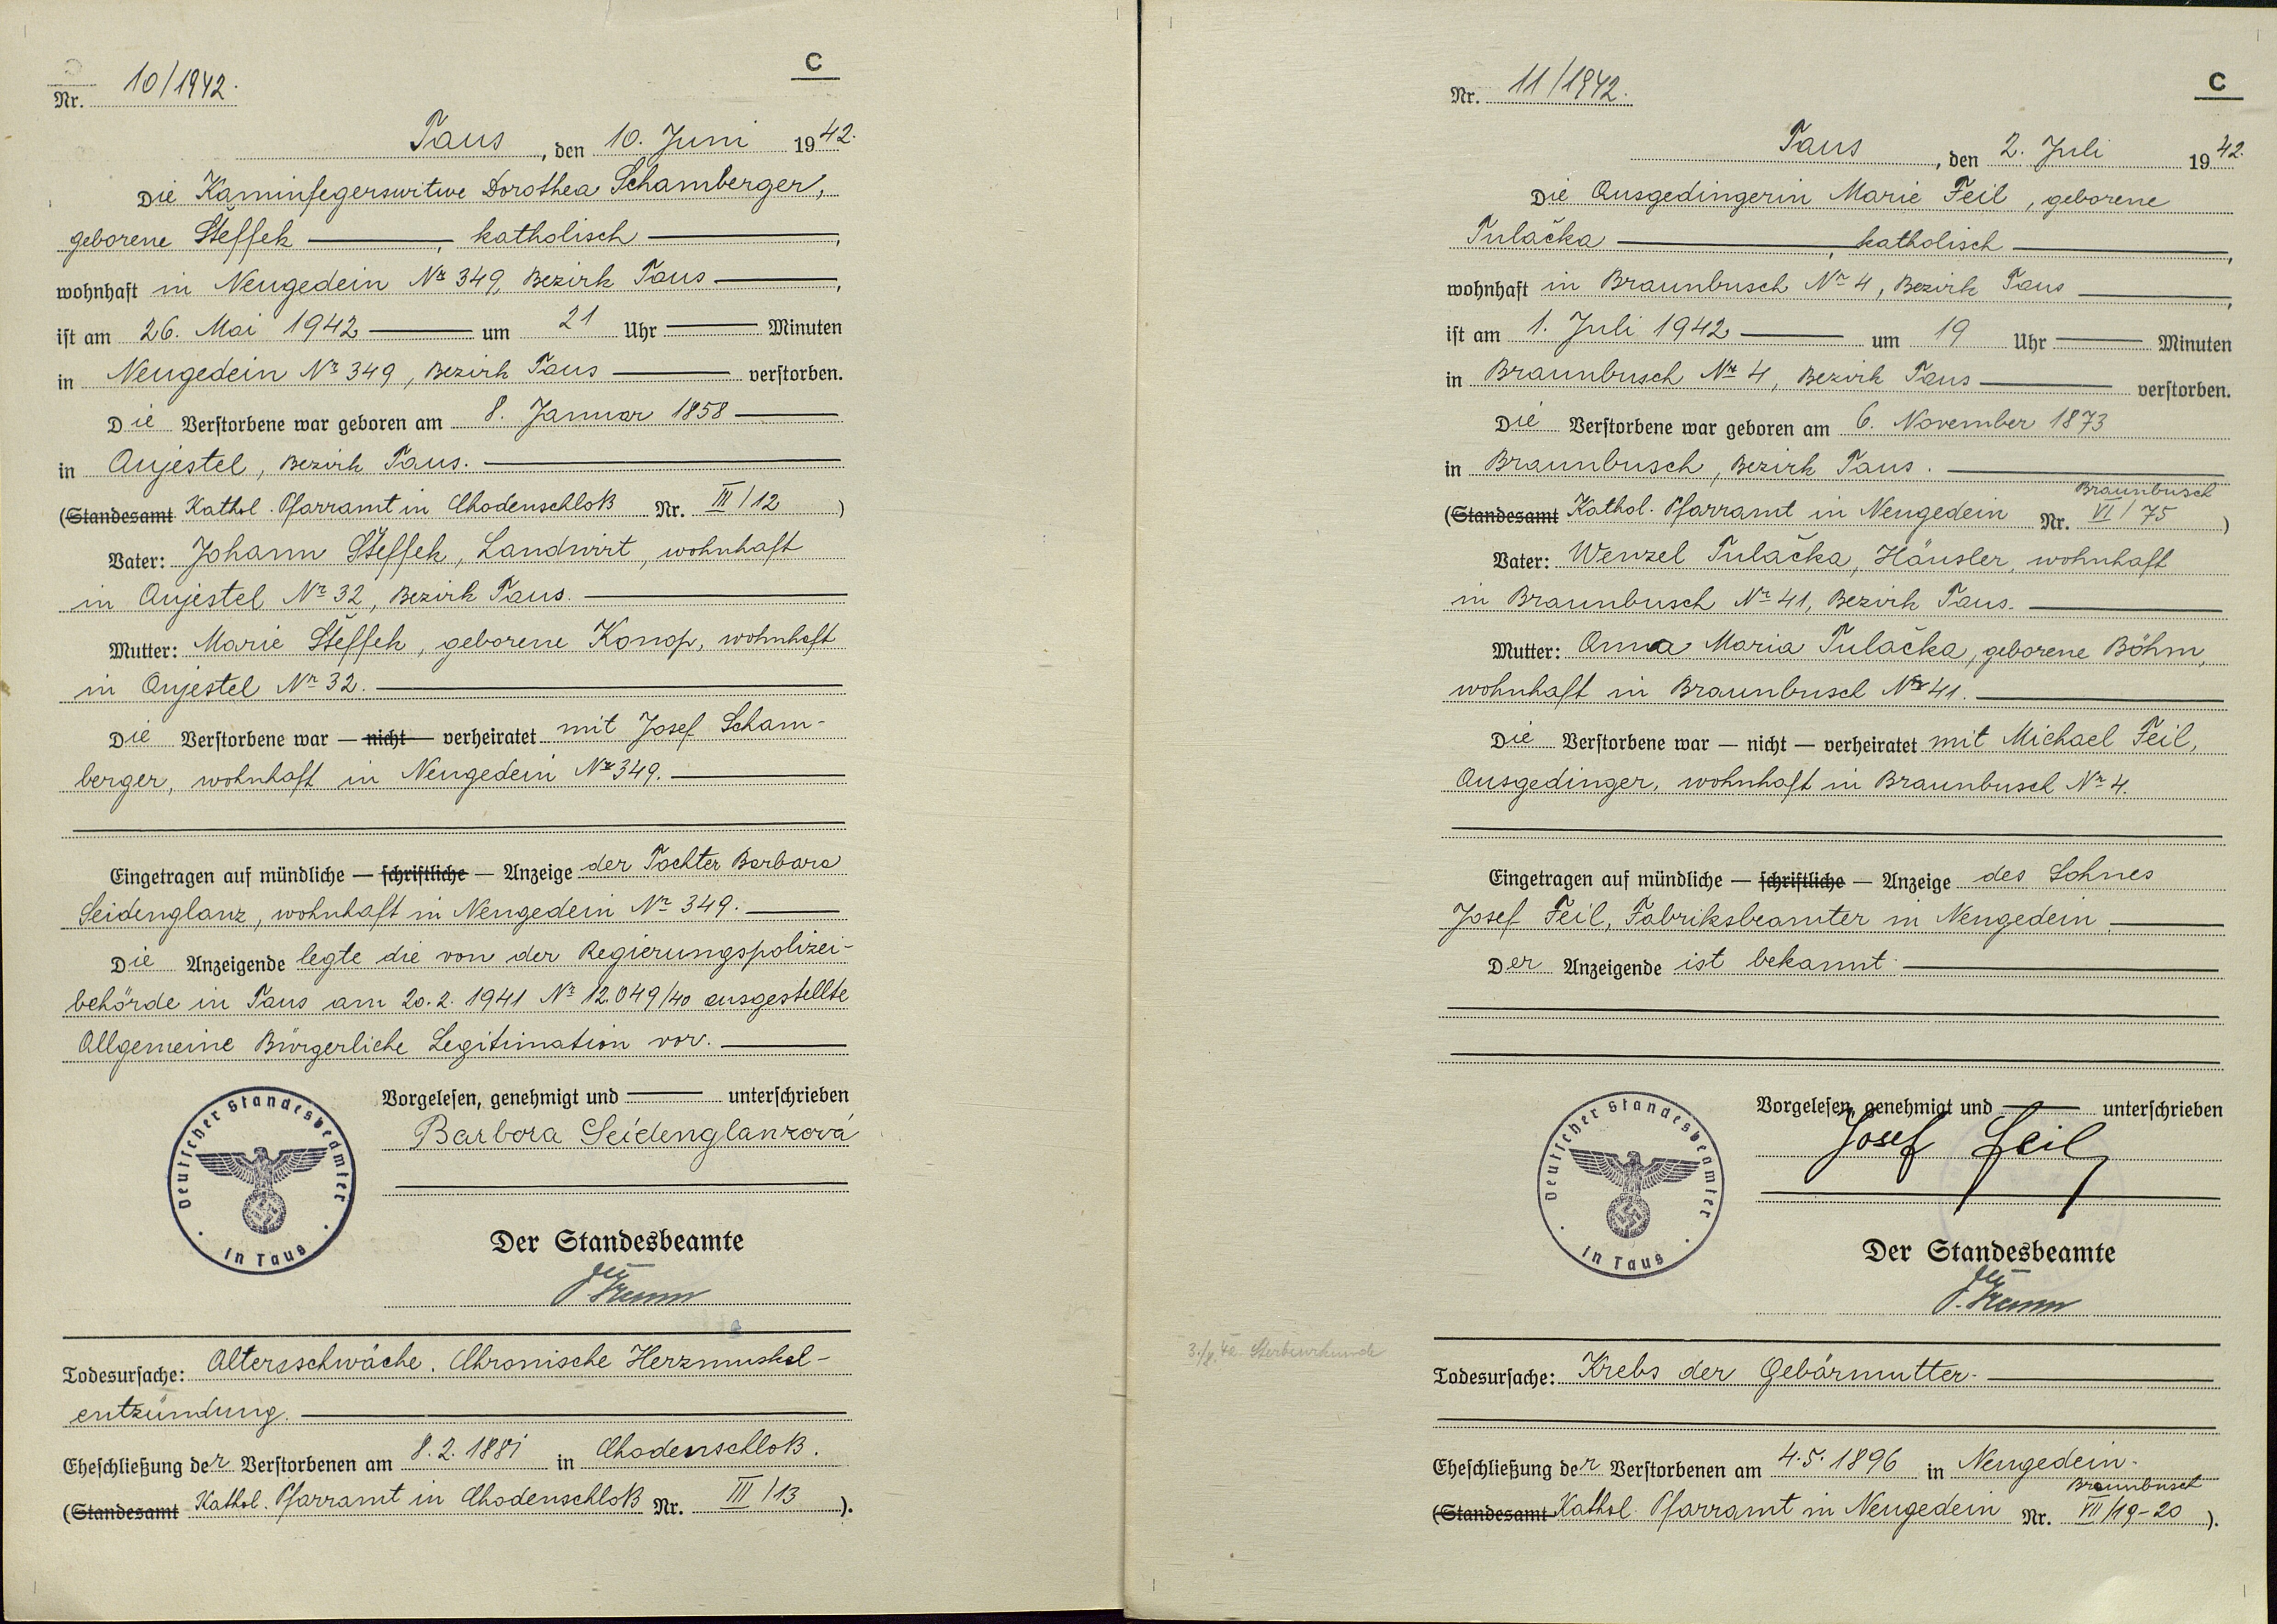 C
Nr. 10/1942.
Taus, den 10. Juni 1942.
Die Kaminfegerswitwe Dorothea Schamberger,
geborene Šteffek, katholisch,
wohnhaft in Neugedein Nr 349, Bezirk Taus,
ist am 26. Mai 1942 um 21 Uhr Minuten
in Neugedein Nr 349, Bezirk Taus verstorben.
Die Verstorbene war geboren am 8. Januar 1858
in Aujestel, Bezirk Taus.
(Standesamt Kathol. Pfarramt in Chodenschloß Nr. III/12)
Vater: Johann Šteffek, Landwirt, wohnhaft
in Aujestel Nr 32, Bezirk Taus.
Mutter: Marie Šteffek, geborene Konop, wohnhaft
in Aujestel Nr 32.
Die Verstorbene war — nicht — verheiratet mit Josef Scham-
berger, wohnhaft in Neugedein Nr 349.
Eingetragen auf mündliche — schriftliche — Anzeige der Tochter Barbara
Seidenglanz, wohnhaft in Neugedein Nr 349.
Die Anzeigende legte die von der Regierungspolizei-
behörde in Taus am 20.2.1941 Nr 12.049/40 ausgestellte
Allgemeine Bürgerliche Legitimation vor.
Vorgelesen, genehmigt und unterschrieben
Barbora Seidenglanzová
Deutscher Standesbeamter
in Taus
Der Standesbeamte
Todesursache: Altersschwäche. Chronische Herzmuskel-
entzündung.
Eheschließung der Verstorbenen am 8.2.1881 in Chodenschloß.
(Standesamt Kathol. Pfarramt in Chodenschloß Nr. III/13).
C
Nr. 11/1942.
Taus, den 2. Juli 1942.
Die Ausgedingerin Marie Feil, geborene
Tulačka, katholisch,
wohnhaft in Braunbusch Nr 4, Bezirk Taus,
ist am 1. Juli 1942 um 19 Uhr Minuten
in Braunbusch Nr 4, Bezirk Taus verstorben.
Die Verstorbene war geboren am 6. November 1873
in Braunbusch, Bezirk Taus.
Braunbusch
(Standesamt Kathol. Pfarramt in Neugedein Nr. VI/75)
Vater: Wenzel Tulačka, Häusler, wohnhaft
in Braunbusch Nr 41, Bezirk Taus.
Mutter: Anna Maria Tulačka, geborene Böhm,
wohnhaft in Braunbusch Nr 41.
Die Verstorbene war — nicht — verheiratet mit Michael Feil,
Ausgedinger, wohnhaft in Braunbusch Nr 4.
Eingetragen auf mündliche — schriftliche — Anzeige des Sohnes
Josef Feil, Fabriksbeamter in Neugedein.
Der Anzeigende ist bekannt.
Vorgelesen, genehmigt und unterschrieben
Josef Feil
Deutscher Standesbeamter
in Taus
Der Standesbeamte
Sterbeurkunde
Todesursache: Krebs der Gebärmutter.
Eheschließung der Verstorbenen am 4.5.1896 in Neugedein.
Braunbusch
(Standesamt Kathol. Pfarramt in Neugedein Nr. VII/19-20).